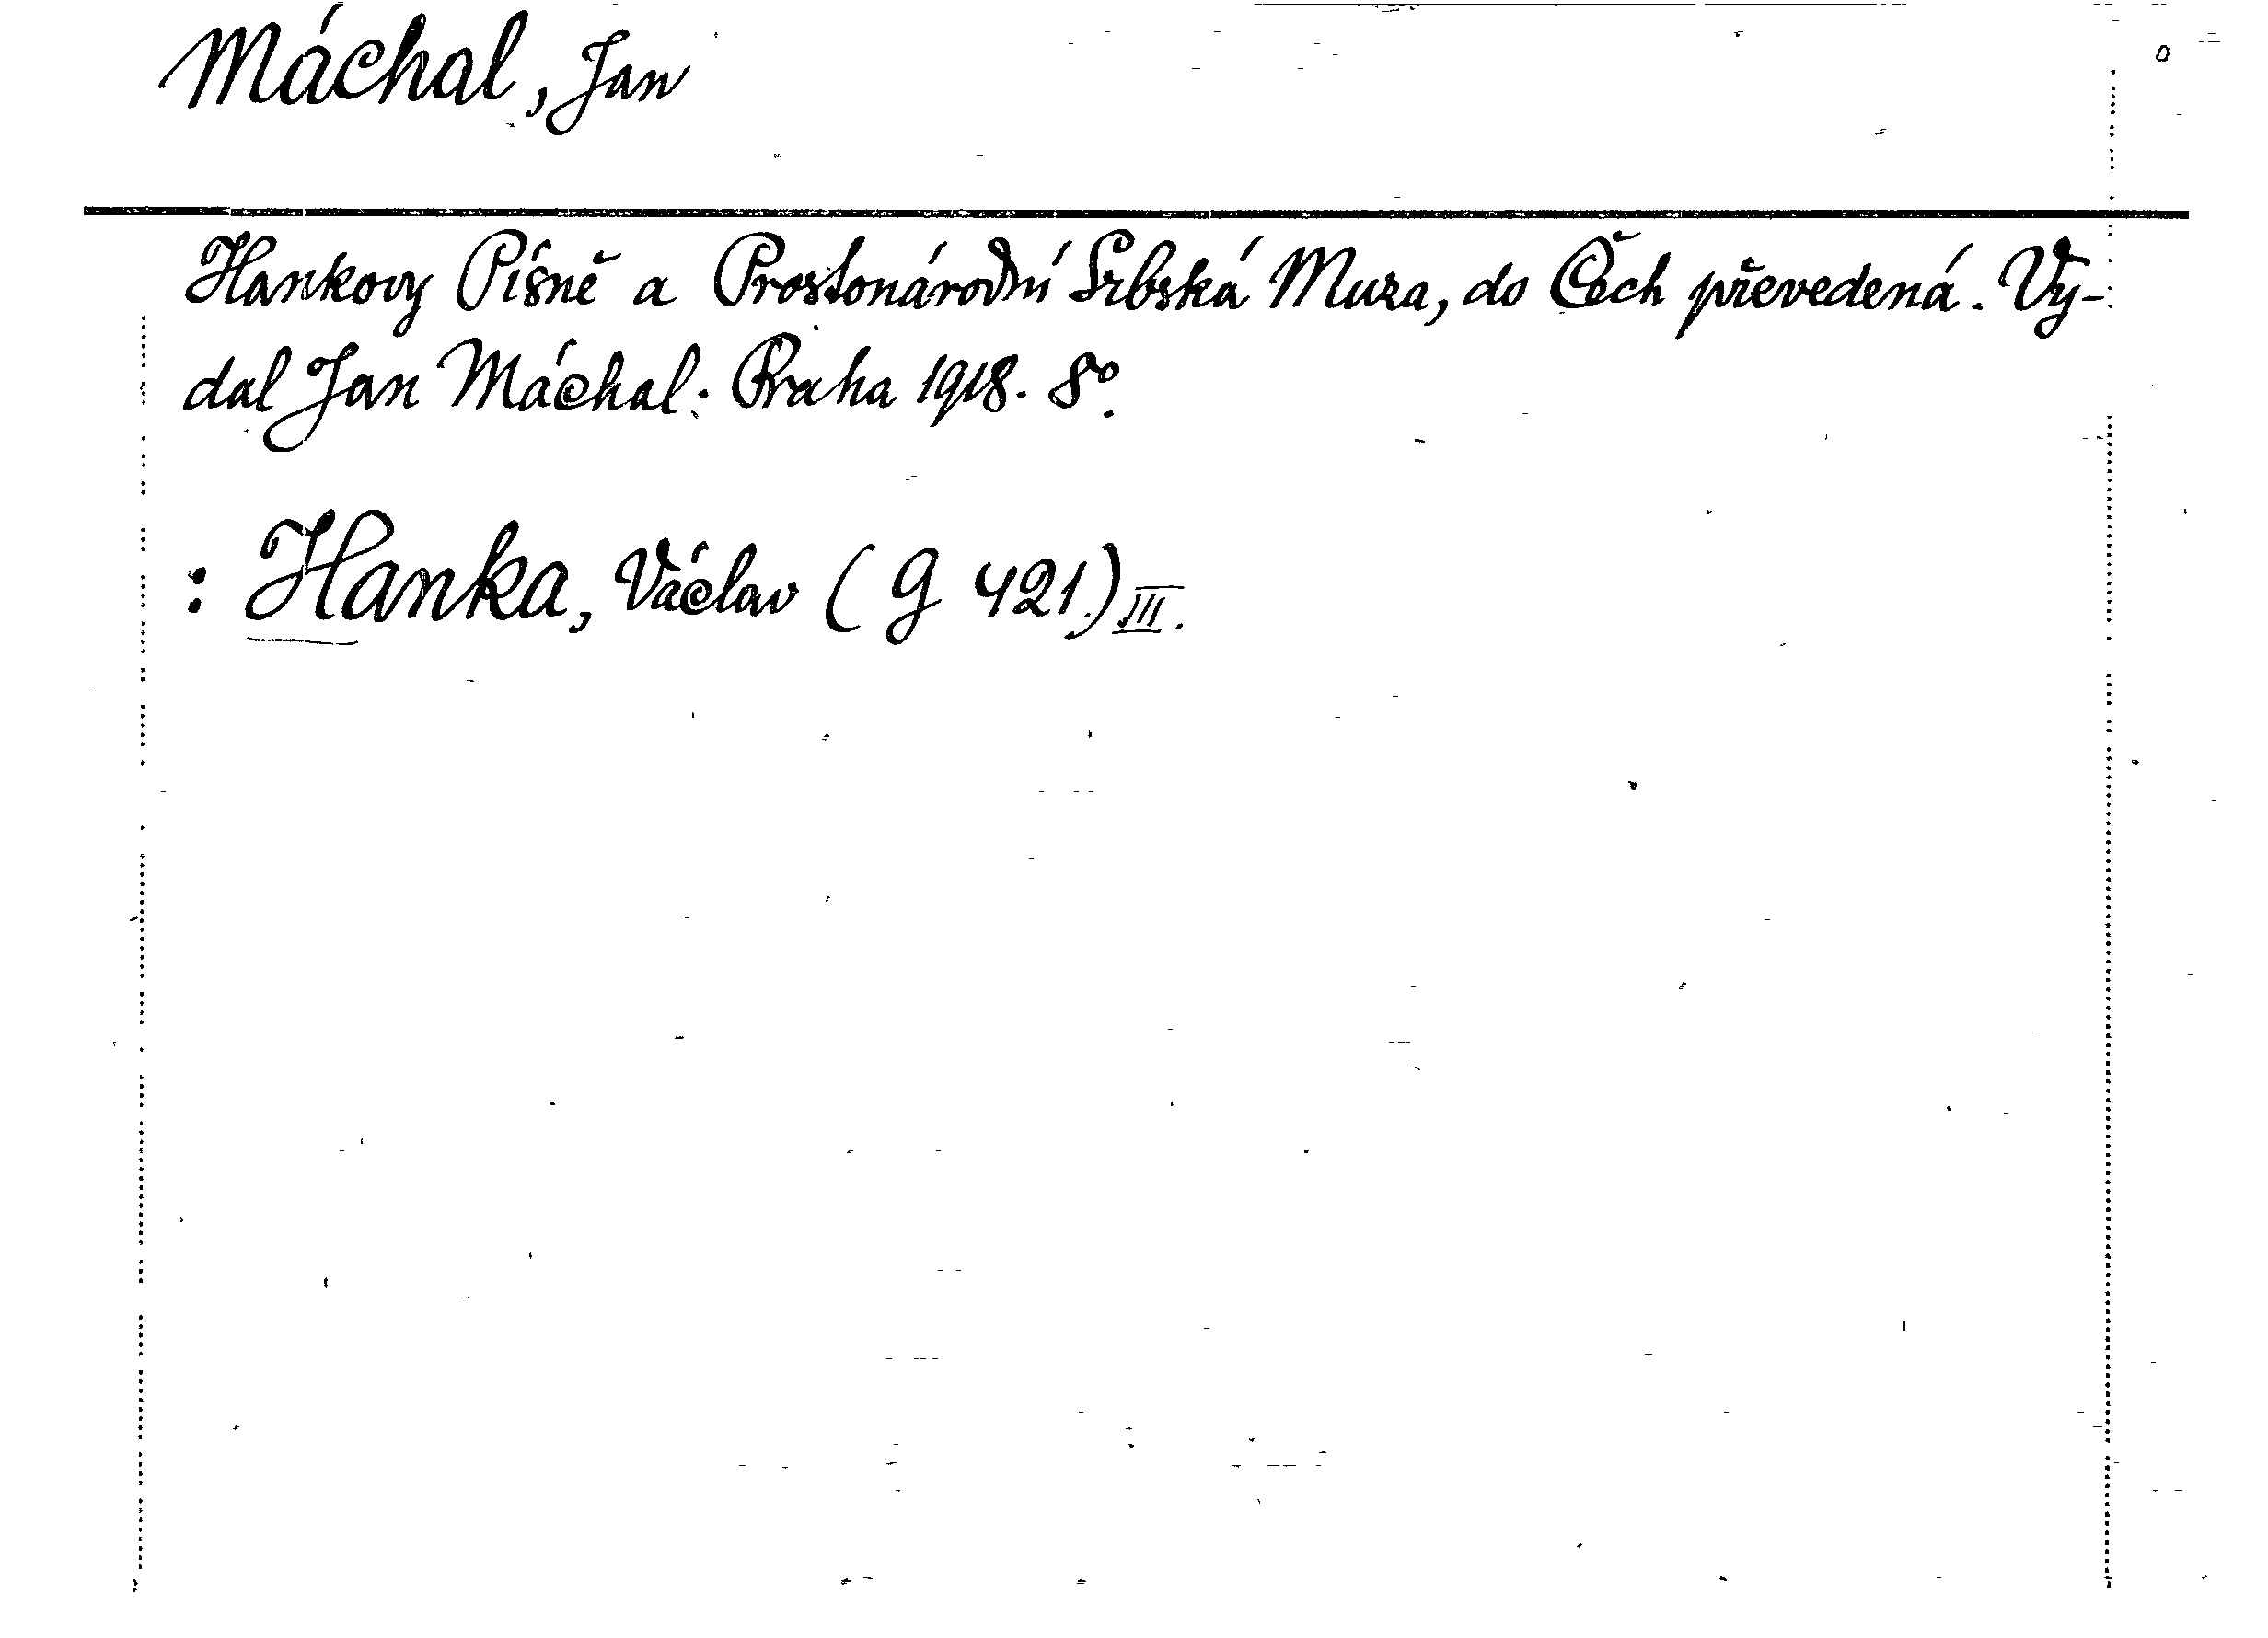 Máchal, Jan
Hankovy Písně a Prostonárodní Srbská Muza, do Čech převedená. Vy-
dal Jan Máchal: Praha 1918. 8º.
: Hanka, Václav (G 421.) III.